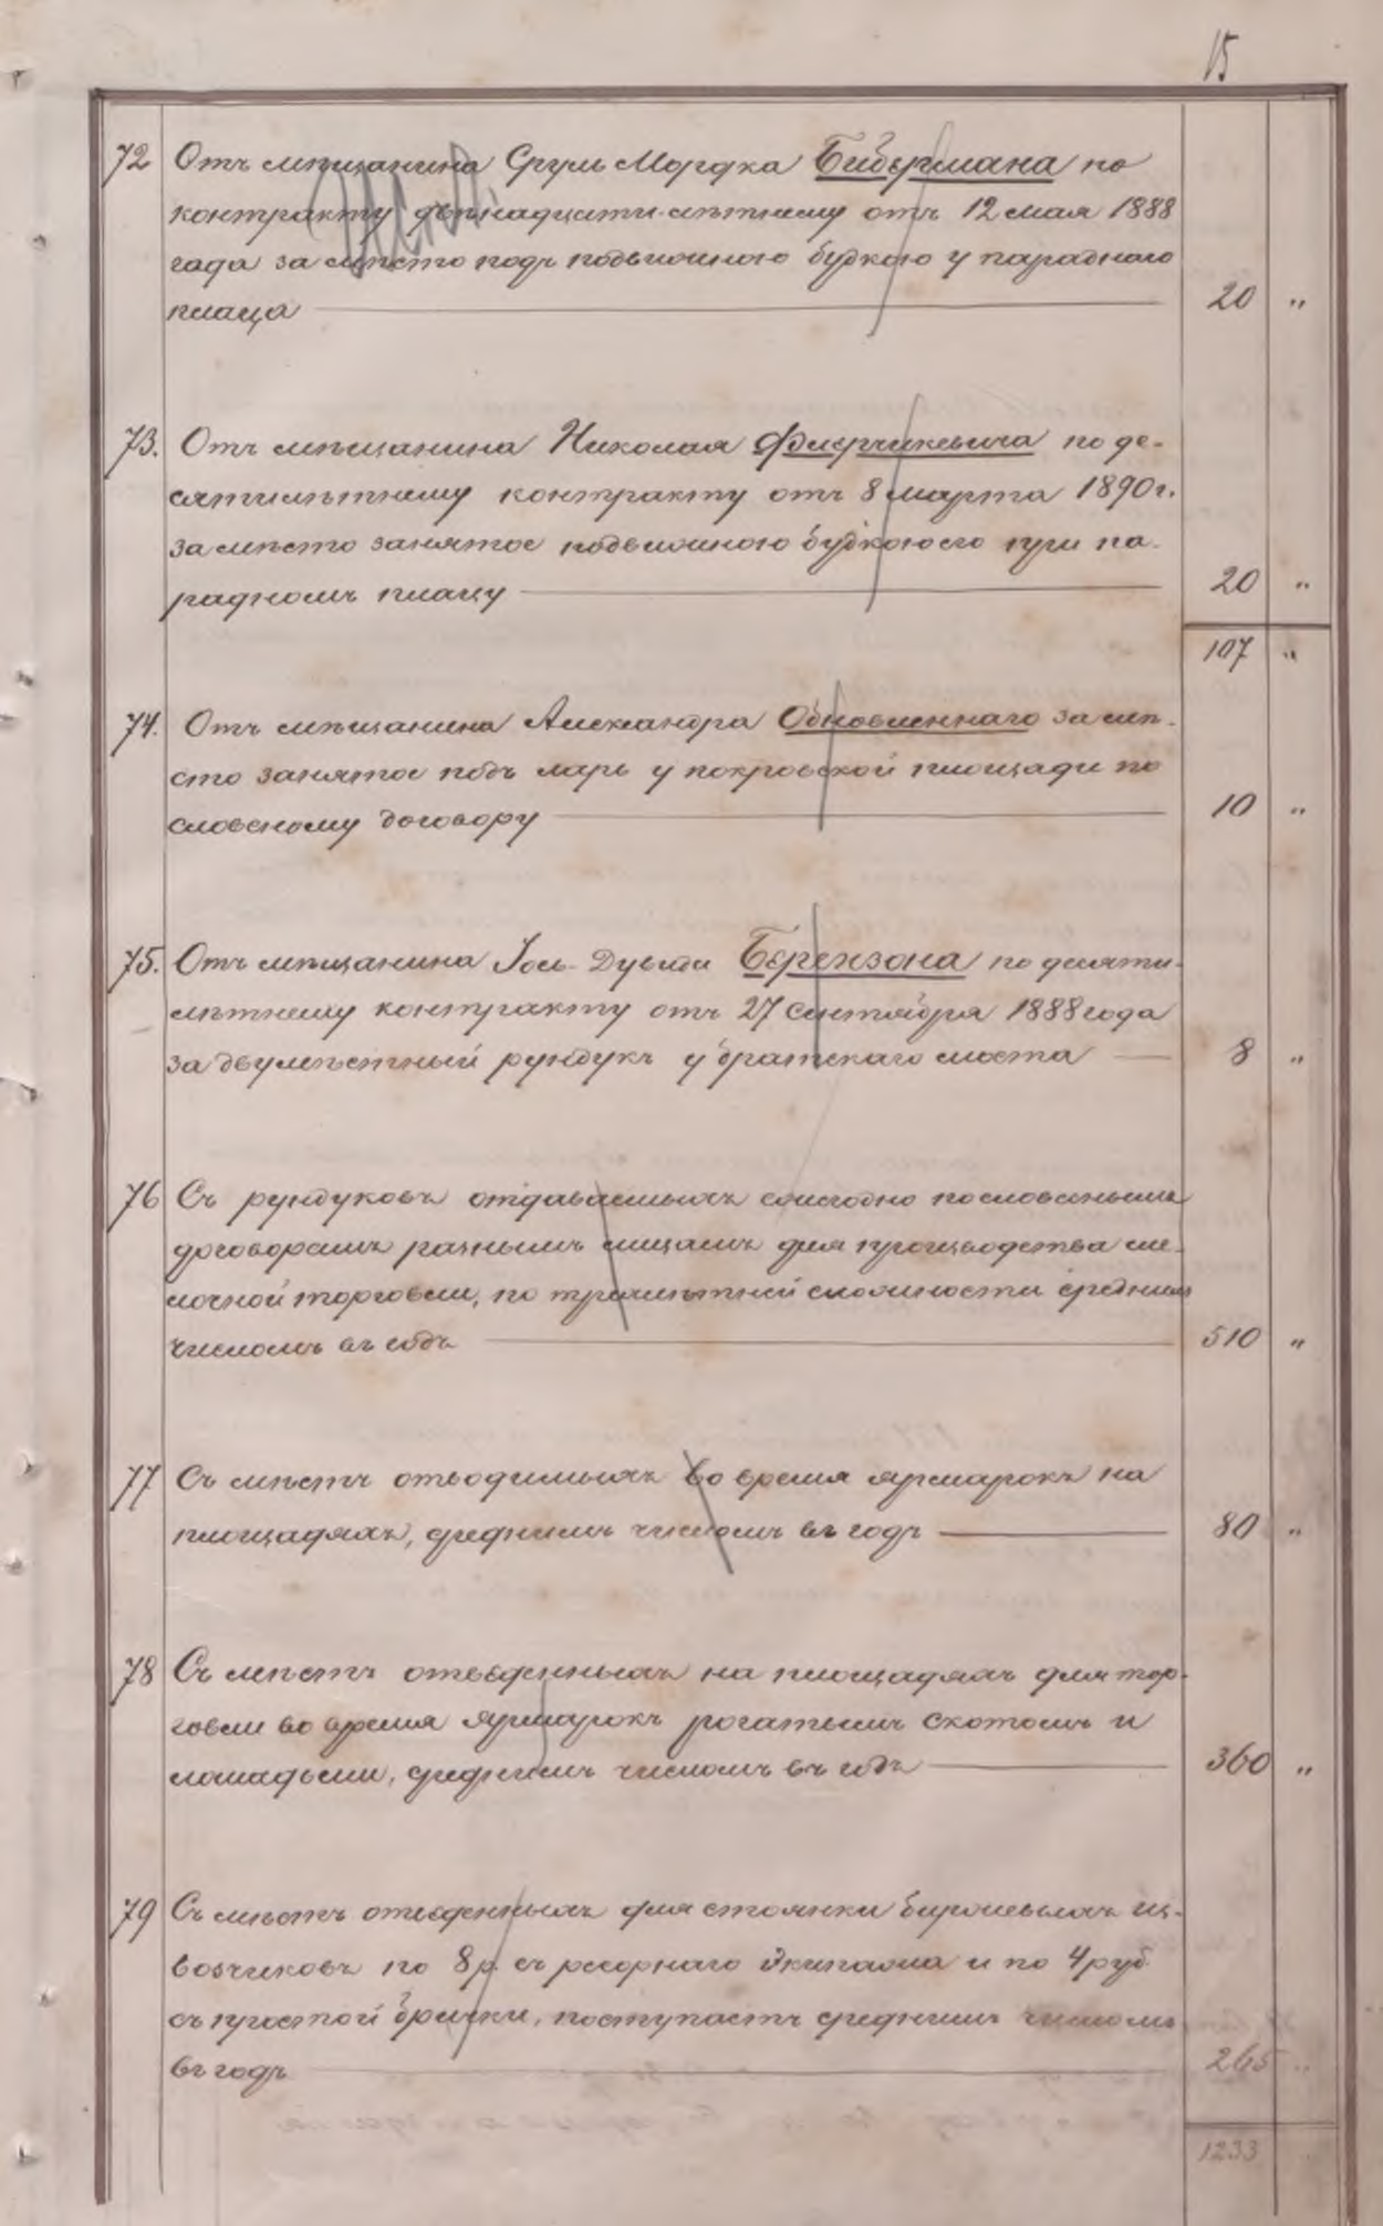 15
72 Отъ мѣщанина Сруль Мордка Бибермана по
контракту двѣнадцати-лѣтнему отъ 12 мая 1888
года за мѣсто подъ подвижною будкою у параднаго
плаца 20 "
73. Отъ мѣщанина Николая по де-
сятилѣтнему контракту отъ 8 марта 1890 г.
за мѣсто занятое подвижною будкою его при па-
радномъ плацу 20 "
107 "
74. Отъ мѣщанина Александра Обновленнаго за мѣ-
сто занятое подъ ларь у покровской площади по
словесному договору 10 "
75. Отъ мѣщанина Іось-Дувида Берензона по десяти-
лѣтнему контракту отъ 27 Сентября 1888 года
за двумѣстный рундукъ у братскаго моста 8 "
76 Съ рундуковъ отдаваемыхъ ежегодно по словеснымъ
договорамъ разнымъ лицамъ для производства ме-
лочной торговли, по трехлѣтней сложности среднимъ
числомъ въ годъ 510 "
77 Съ мѣстъ отводимыхъ во время ярмарокъ на
площадяхъ, среднимъ числомъ въ годъ 80 "
78 Съ мѣстъ отведенныхъ на площадяхъ для тор-
говли во время ярмарокъ рогатымъ скотомъ и
лошадьми, среднимъ числомъ въ годъ 360 "
79 Съ мѣстъ отведенныхъ для стоянки биржевыхъ из-
возчиковъ по 8 р. съ рессорнаго экипажа и по 4 руб
съ простой брички, поступаетъ среднимъ числомъ
въ годъ 265 "
1233